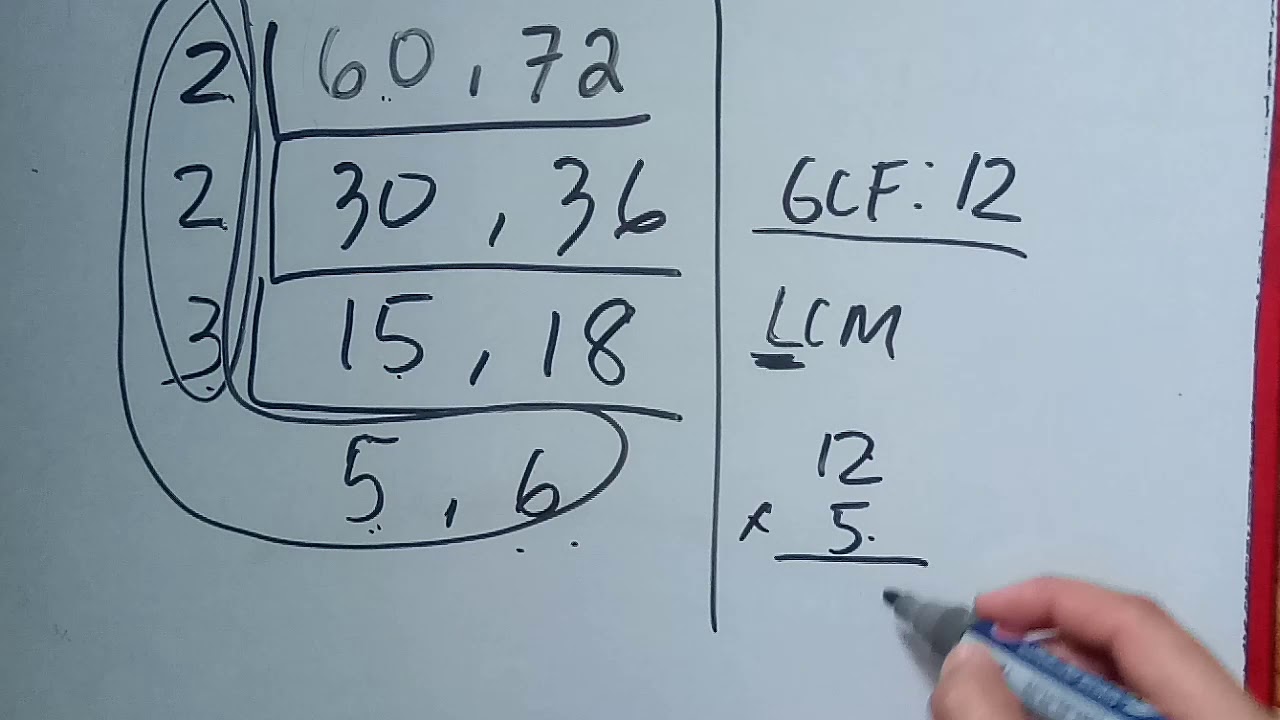 2 60, 72
2 30, 36
3 15, 18
5, 6
GCF: 12
LCM
12
x 5